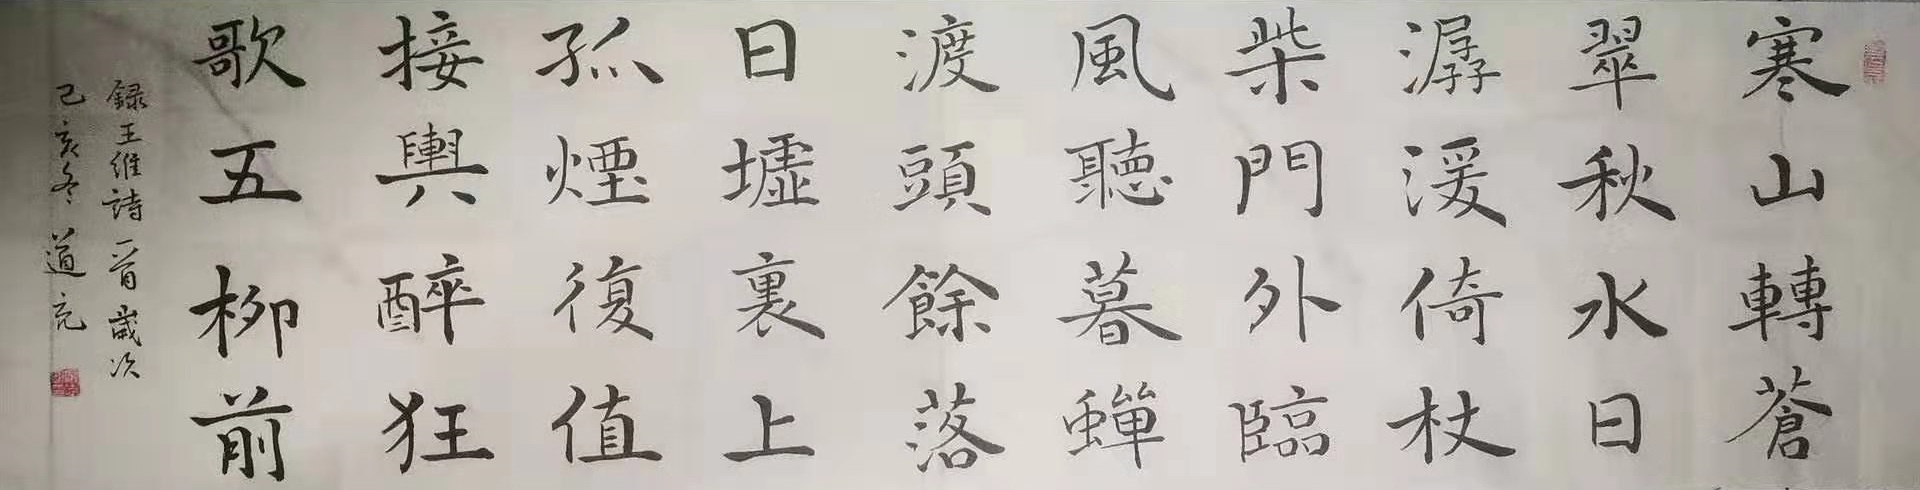 寒山轉蒼
翠秋水日
潺湲倚杖
柴門外臨
風聽暮蟬
渡頭餘落
日墟裏上
孤煙復值
接輿醉狂
歌五柳前
録王維詩一首歲次
己亥冬道充